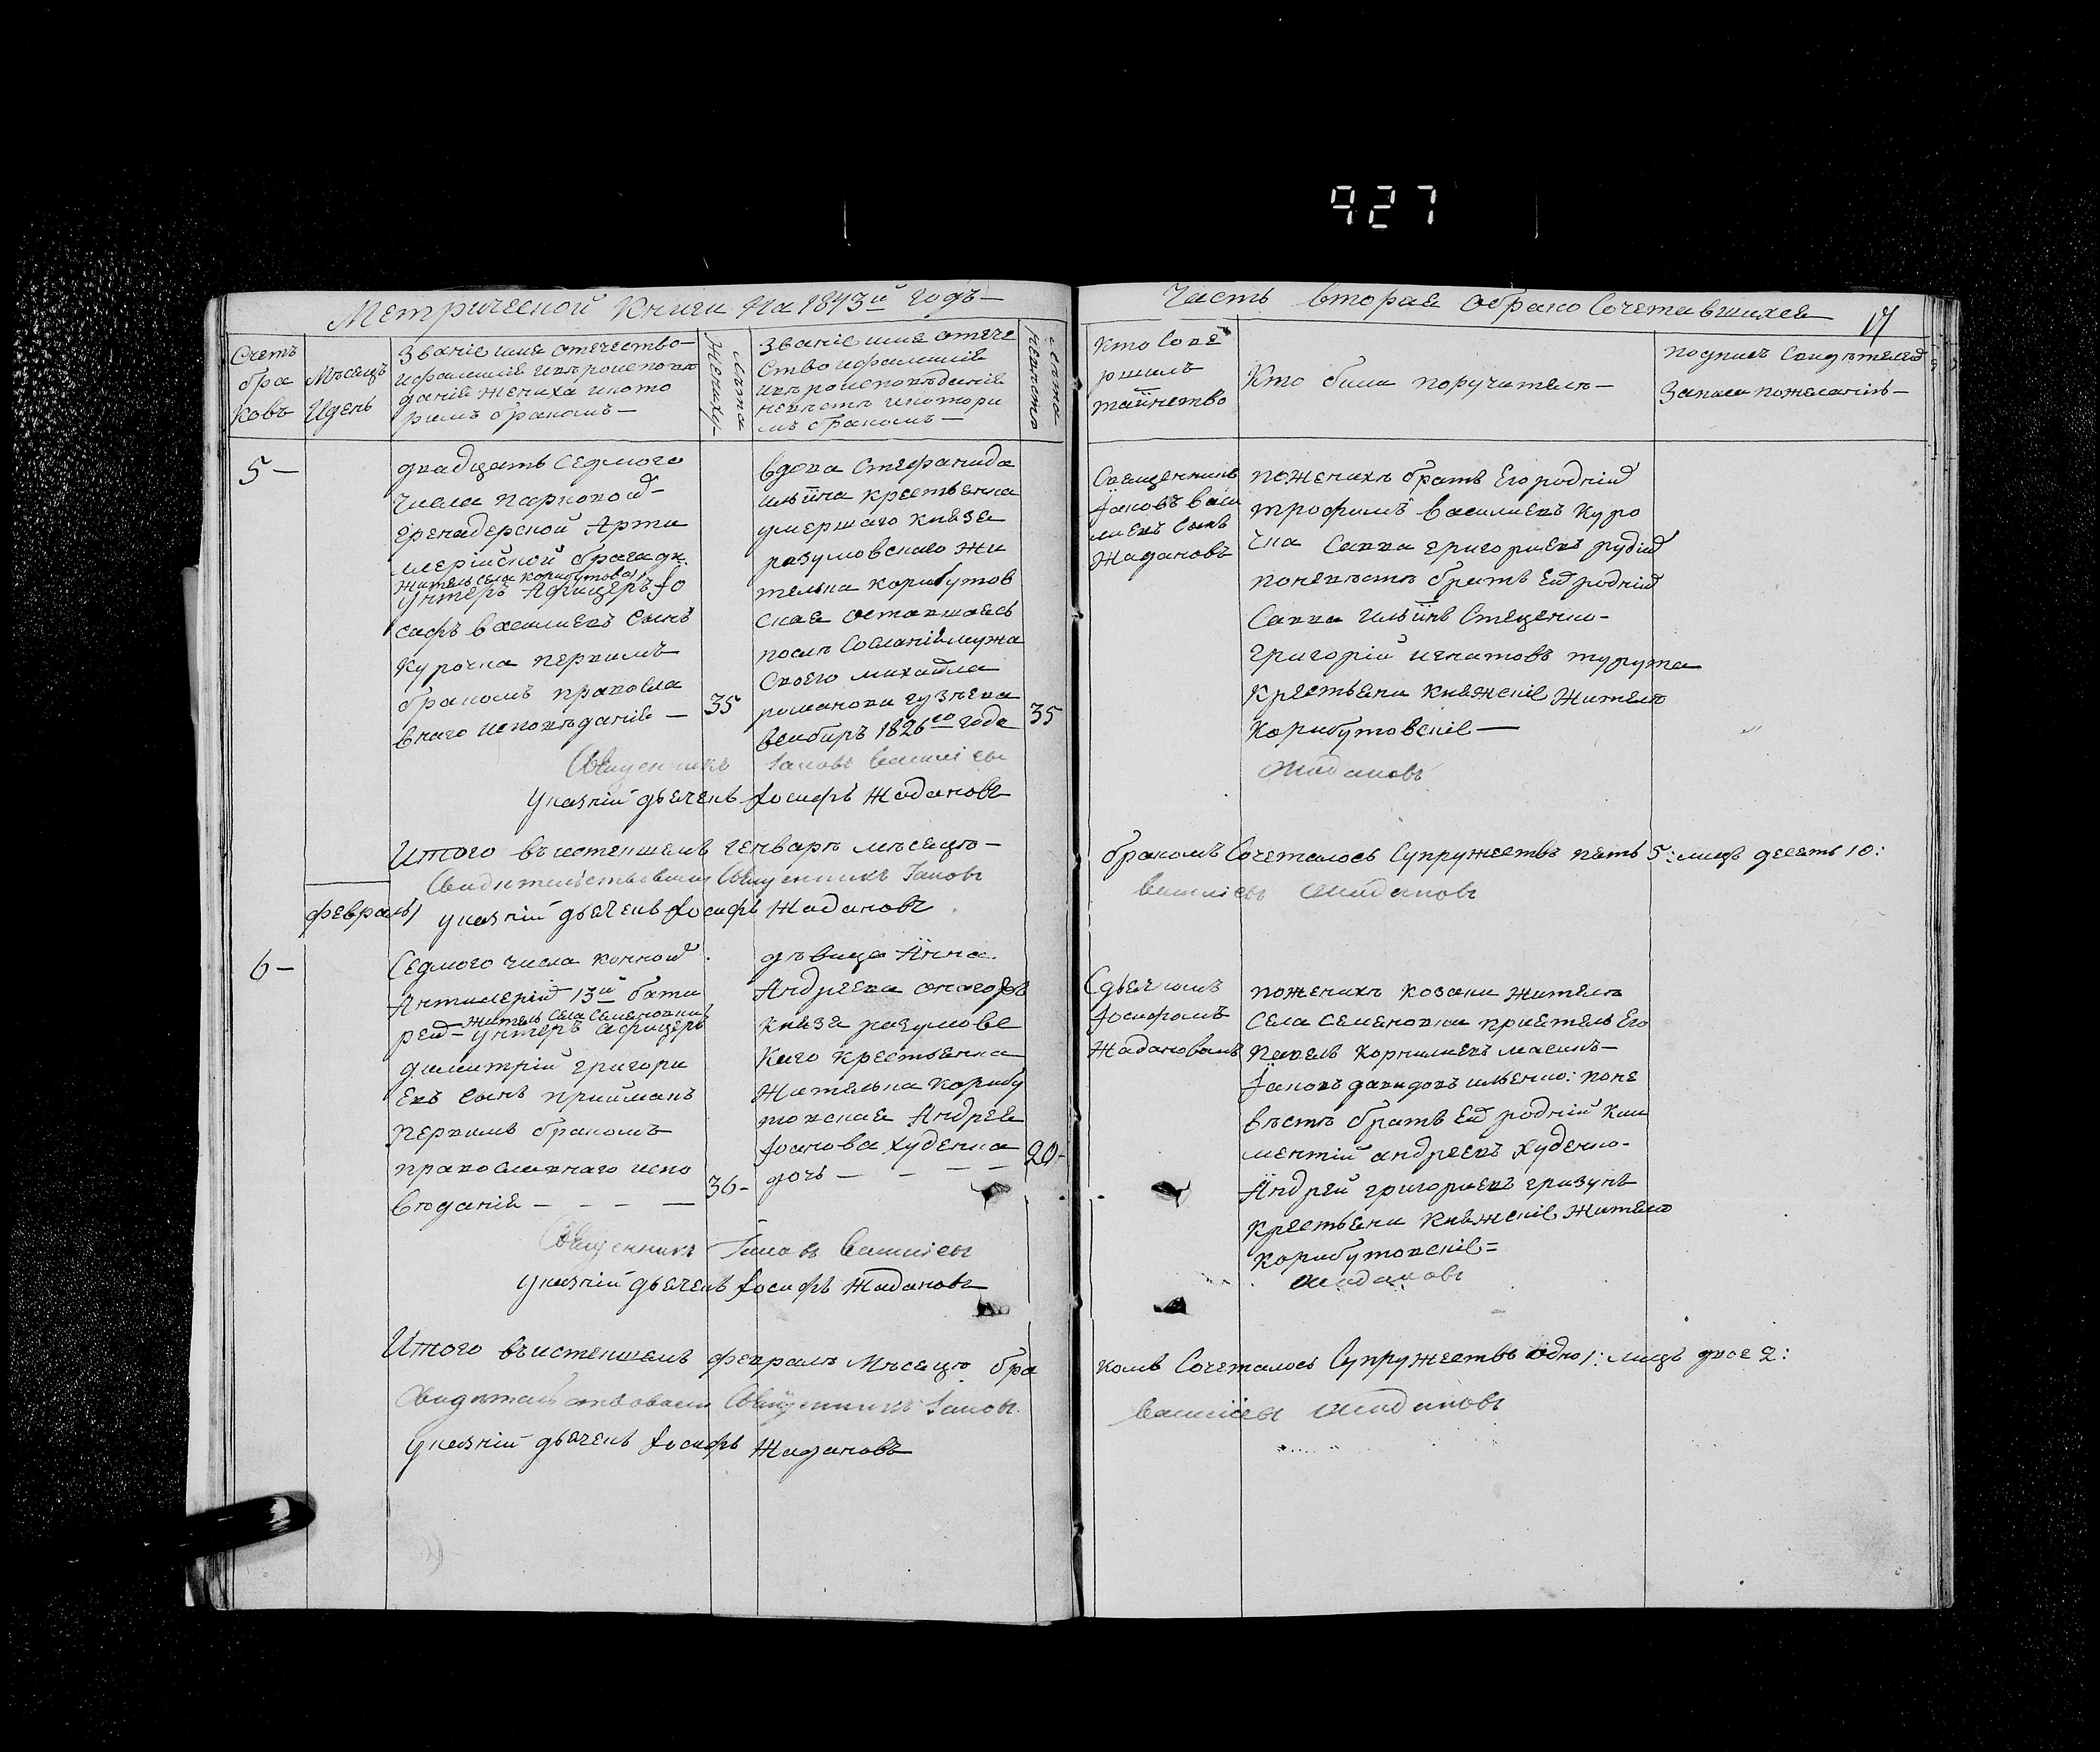 927
Метрической Книги На 1843й годъ—
Часть вторая о бракосочетавшихся
17
Счетъ
бра
ковъ
Мѣсецъ
Идень
Званіе имя отечество
ифамилія ивѣроисповѣ
даніе жениха икото
римъ бракомъ—
Лѣта
Жениху—
Званіе имя отече
ство ифамилія
ивѣроисповѣданіе
невѣсти икотори
мъ бракомъ—
Лѣта
Невѣсто
Кто Сове
ршилъ
таинство
Кто били поручителѣ—
подписъ Свидѣтелей
Записи пожеланію—
5—
двадцать Седмого
числа парковой—
гренадерской Арти
лерійской брагади
житель села Корибутова
Унтеръ Афицеръ Іо
сифъ василиевъ Синъ
Курочка первимъ
бракомъ правосла
внаго исповѣданія—
35
вдова Стефанида
ильина крестьянка
умершаго Князя
разумовскаго жи
телька корибутов
ская оставшаясь
послѣ Сосланія мужа
Своего михайла
романова
всибирь 1826го года
35
Священникъ
Іаковъ васи
лиевъ Синъ
Жадановъ
поженихѣ братъ Его родній
трофимъ василиевъ Куро
чка Савва григориевъ рудій
поневѣстѣ братъ Ей родній
Савва ильинъ Стеценко—
григорій игнатовъ турута
Крестьяни Княжскіе Жителѣ
Корибутовскіе—
Священникъ Іаковъ василіевъ
Жадановъ
Указній дьячекъ Іосифъ Жадановъ
Итого въистекшемъ генварѣ мѣсецѣ—
бракомъ Сочеталось Супружествъ пять 5: лицъ десять 10:
Свидѣтельствовали Священникъ Іаковъ
василіевъ Жадановъ
февраль
указній дьячекъ Іосифъ Жадановъ
6—
Седмого числа конной
Артилеріи 13й бата
житель Села Семеновки
реи— унтеръ афицеръ
димитрій григори
евъ Синъ прийманъ
первимъ бракомъ
православнаго испо
вѣданія— — — —
36—
дѣвица Анна
Андреева
Князя разумовс
Каго крестьянка
Жителька Корибу
товская Андрея
Іоанова худенка
дочь— — — —
20—
Сдьячкомъ
Іосифомъ
Жадановимъ
поженихѣ козаки жителѣ
Села Семеновки приятель Его
Павелъ корнилиевъ
Іаковъ давидовъ ильенко: поне
вѣстѣ братъ Ей родній Кли
ментій андреевъ худенко—
Андрей григориевъ гризунъ
Крестьяни Княжскіе жителѣ
Корибутовскіе=
Священникъ Іаковъ василіевъ
Жадановъ
Указній дьячекъ Іосифъ Жадановъ
Итого въистекшемъ февралѣ Мѣсецѣ бра
комъ Сочеталось Супружествъ одно 1: лицъ двое 2:
Свидѣтельствовали Священникъ Іаковъ
василіевъ Жадановъ
Указній дьячекъ Іосифъ Жадановъ